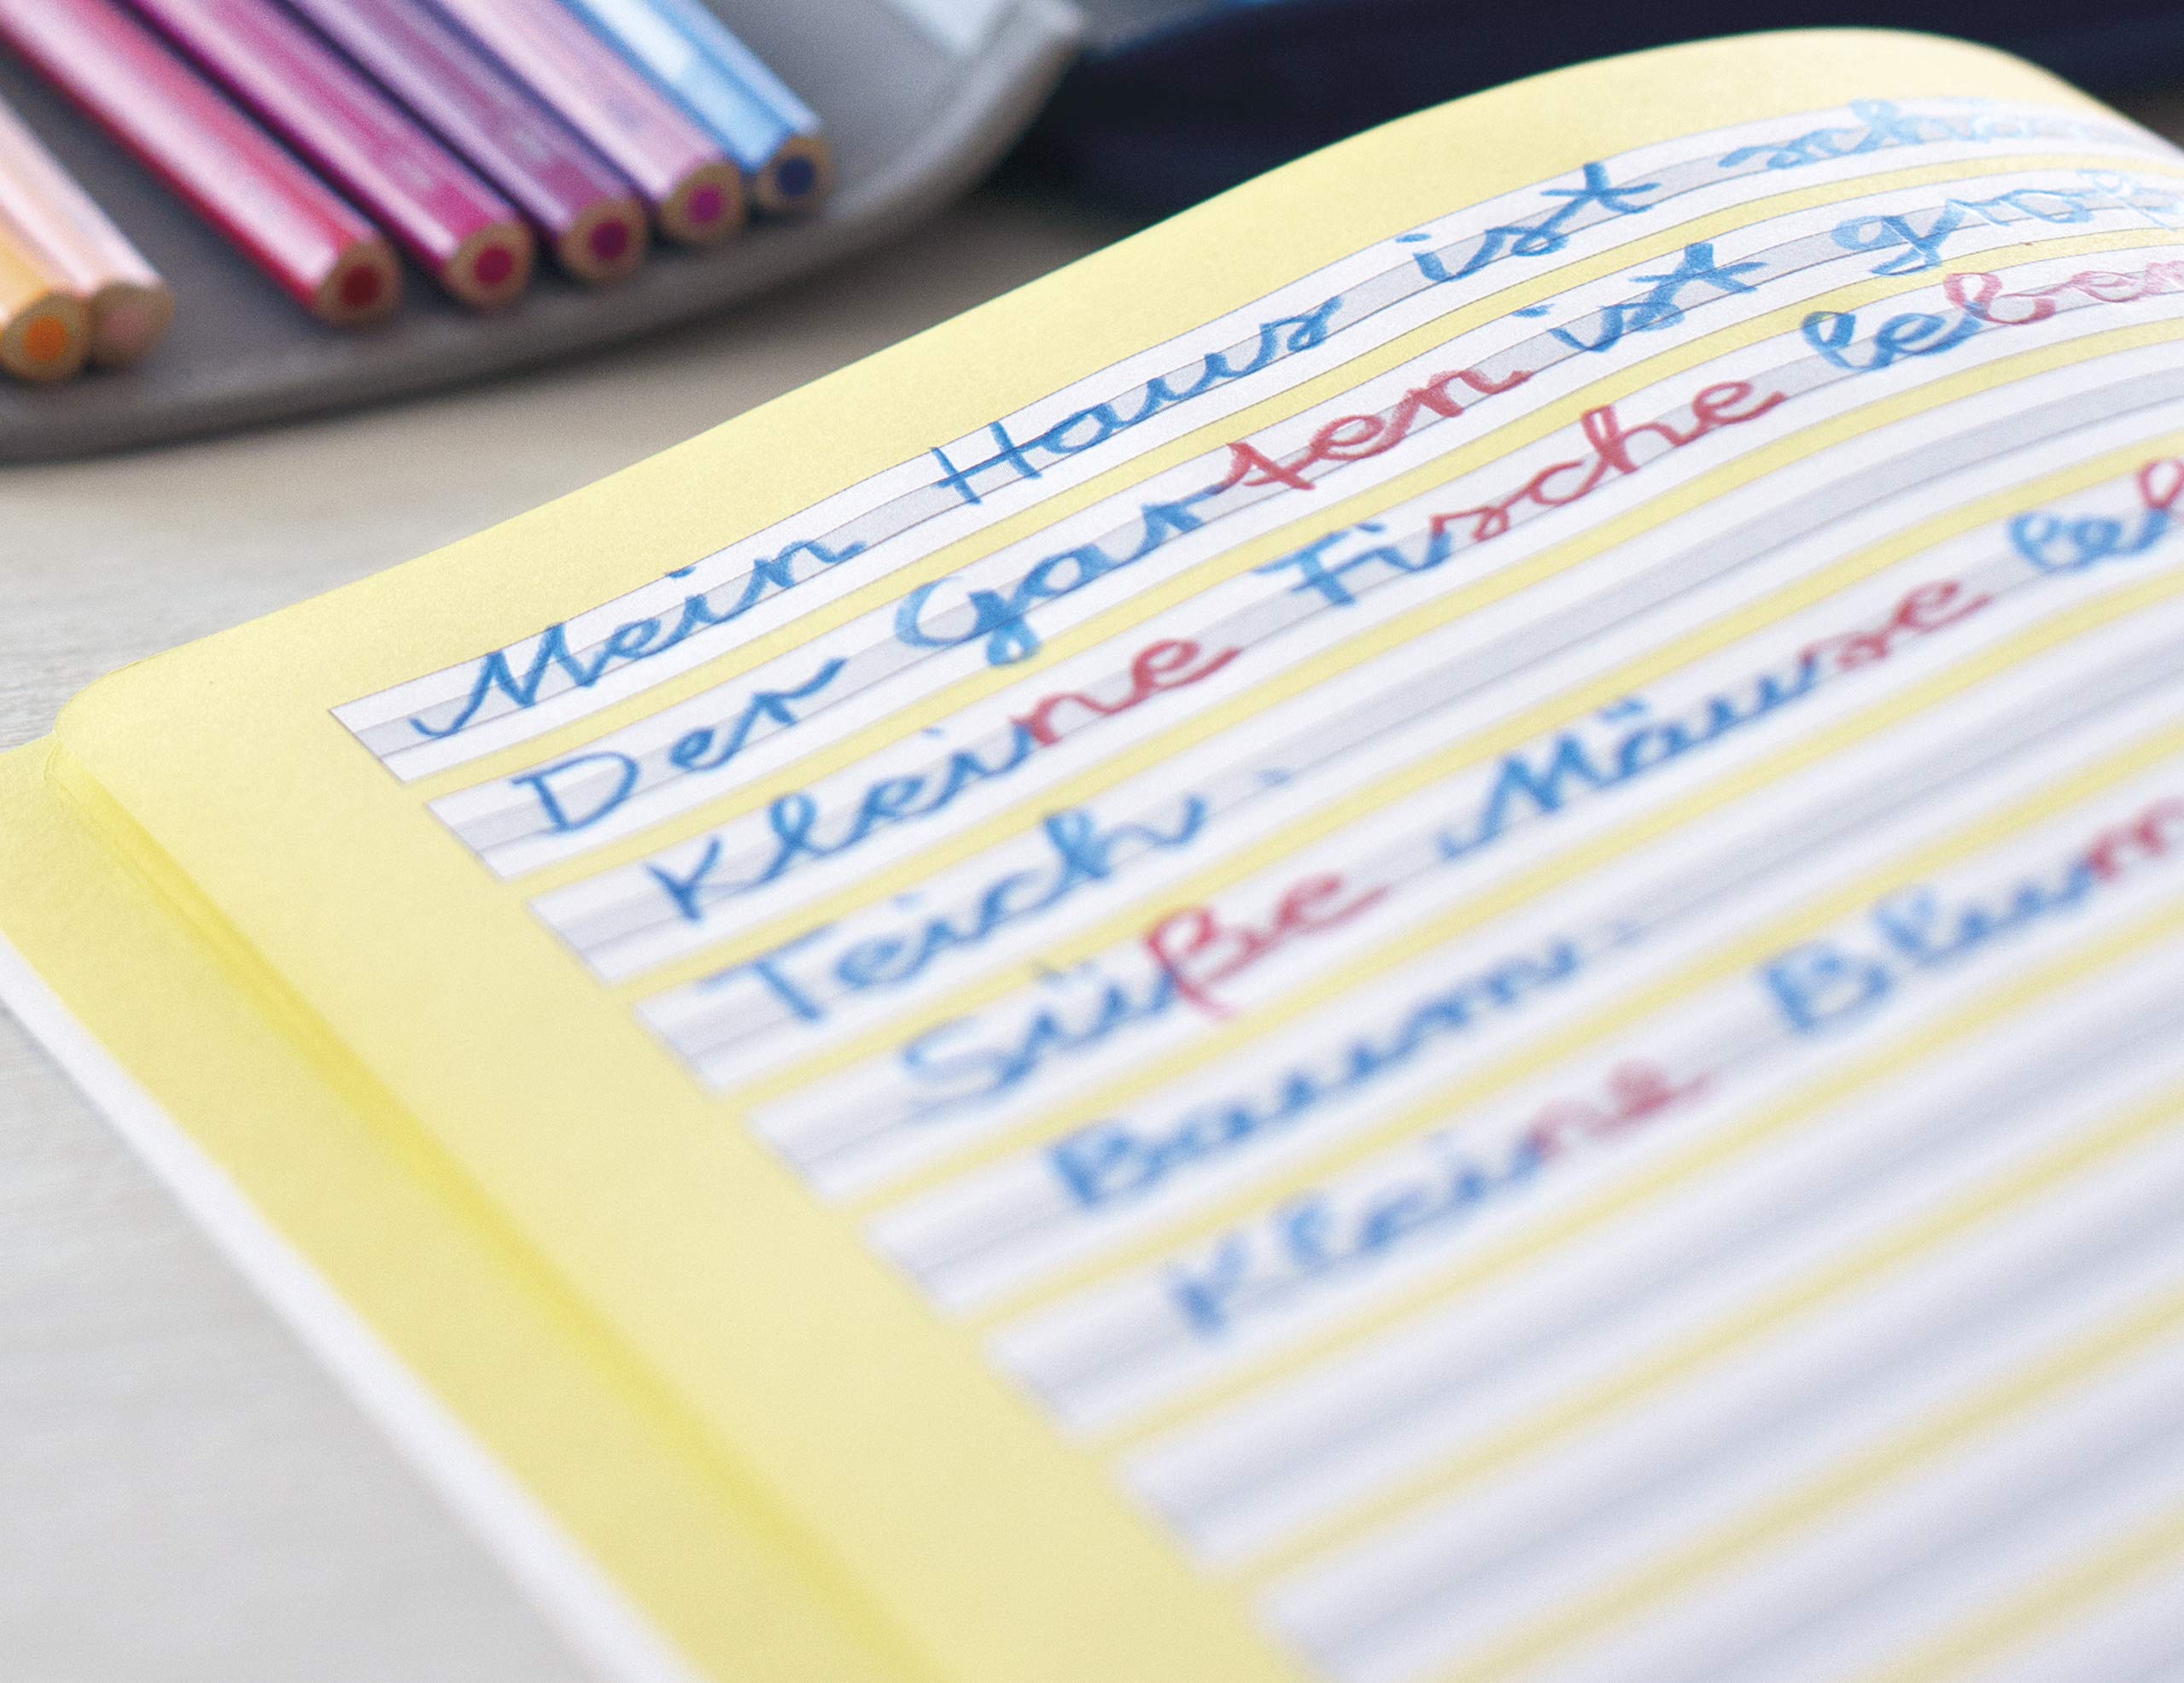 Mein Haus ist schön
Der Garten ist groß
Kleine Fische leben
Teich.
Süße Mäuse
Baum.
Kleine